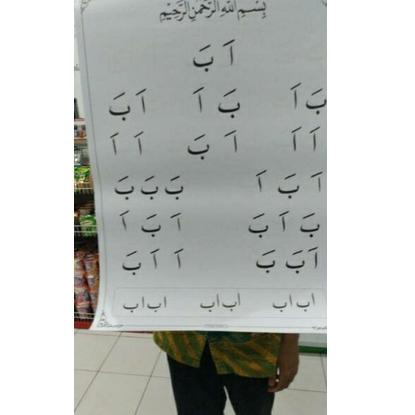 بِسْمِ اللّٰهِ الرَّحْمٰنِ الرَّحِيْمِ
اَ بَ
بَ اَ بَ اَ اَ بَ
اَ اَ اَ بَ اَ اَ
اَ بَ اَ بَ بَ بَ
بَ اَ بَ اَ بَ اَ
اَ بَ بَ اَ اَ بَ
اب اب اب اب اب اب